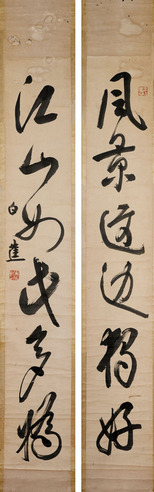 風景這边獨好
江山如此多嬌
白蕉